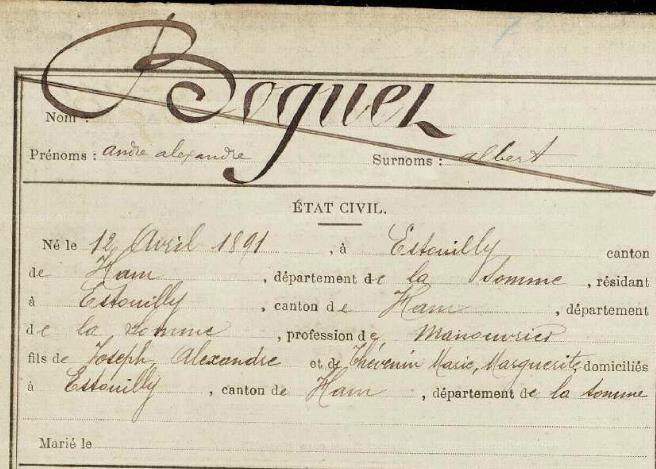 Nom : Boquet
Prénoms : andre alexandre Surnoms : albert
ÉTAT CIVIL.
Né le 12 Avril 1891, à Estouilly canton
de Ham, département de la Somme, résidant
à Estouilly, canton de Ham, département
de la somme, profession de Manouvrier
fils de Joseph, Alexandre et de Thévenin Marie, Marguerite, domiciliés
à Estouilly, canton de Ham, département de la somme
Marié le